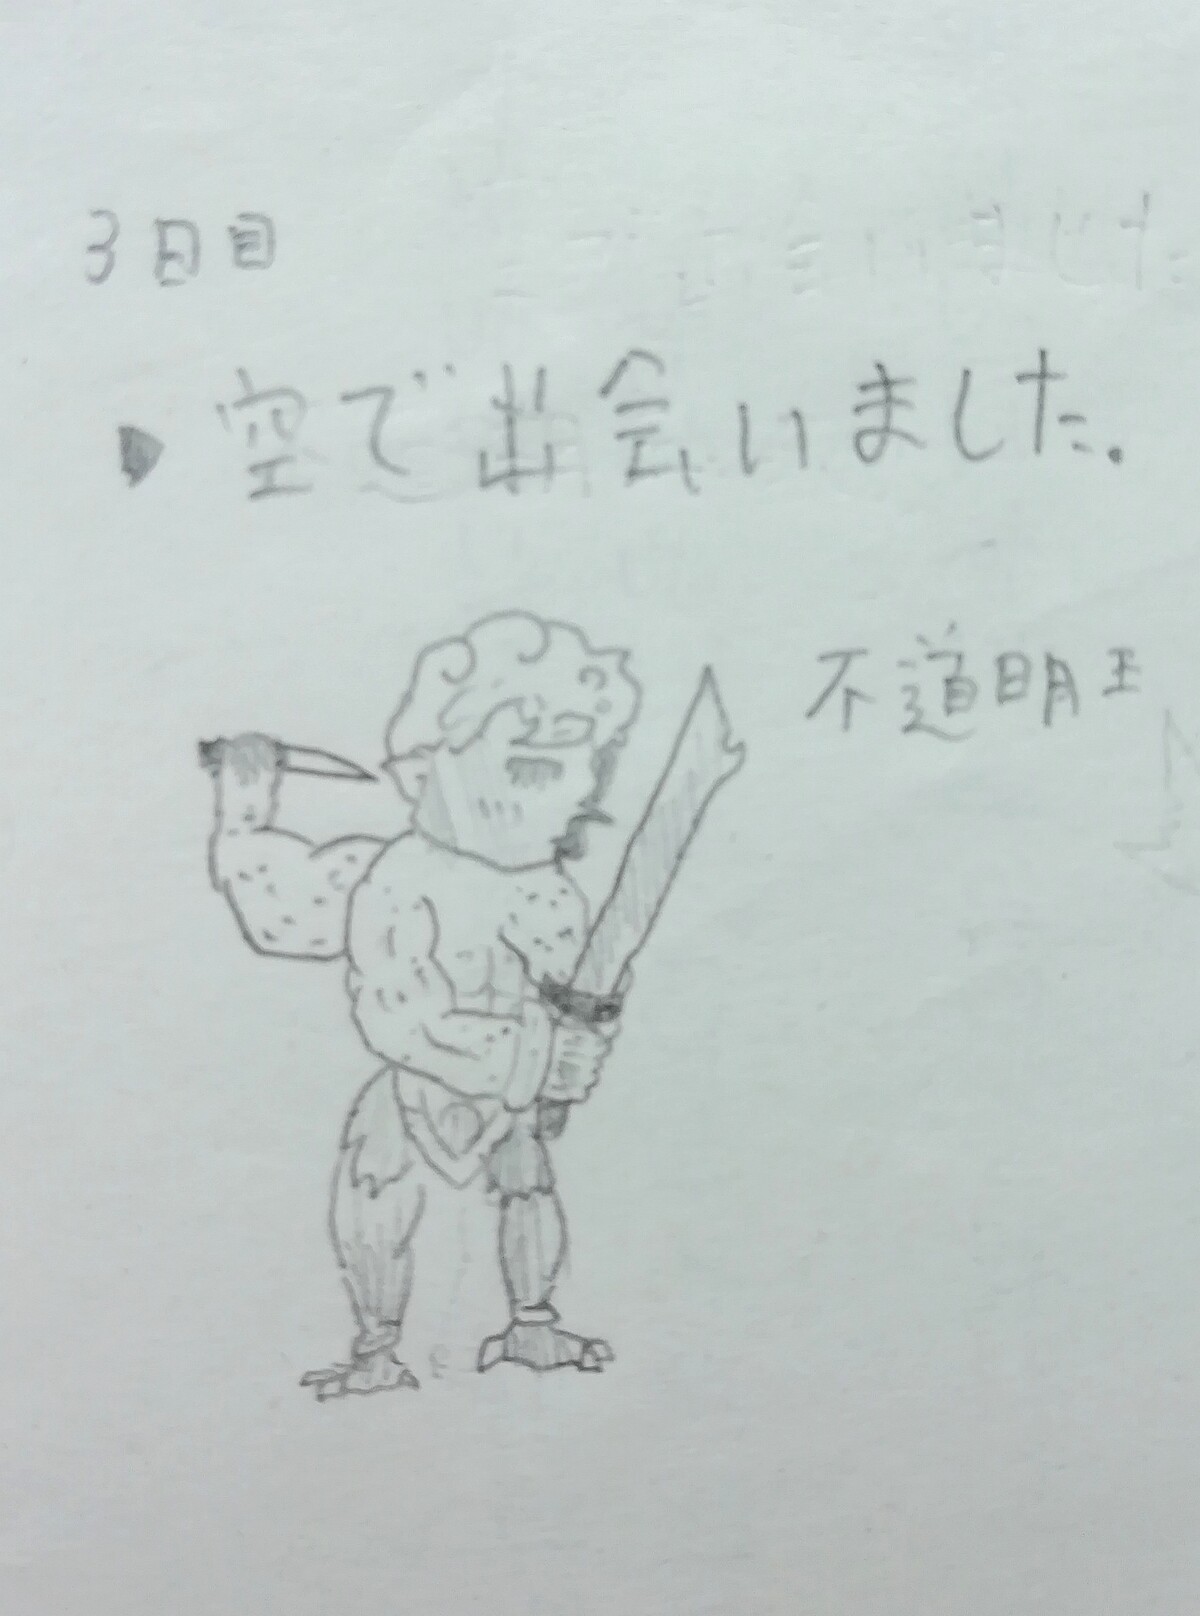 3日目
空で出会いました.
不道明王